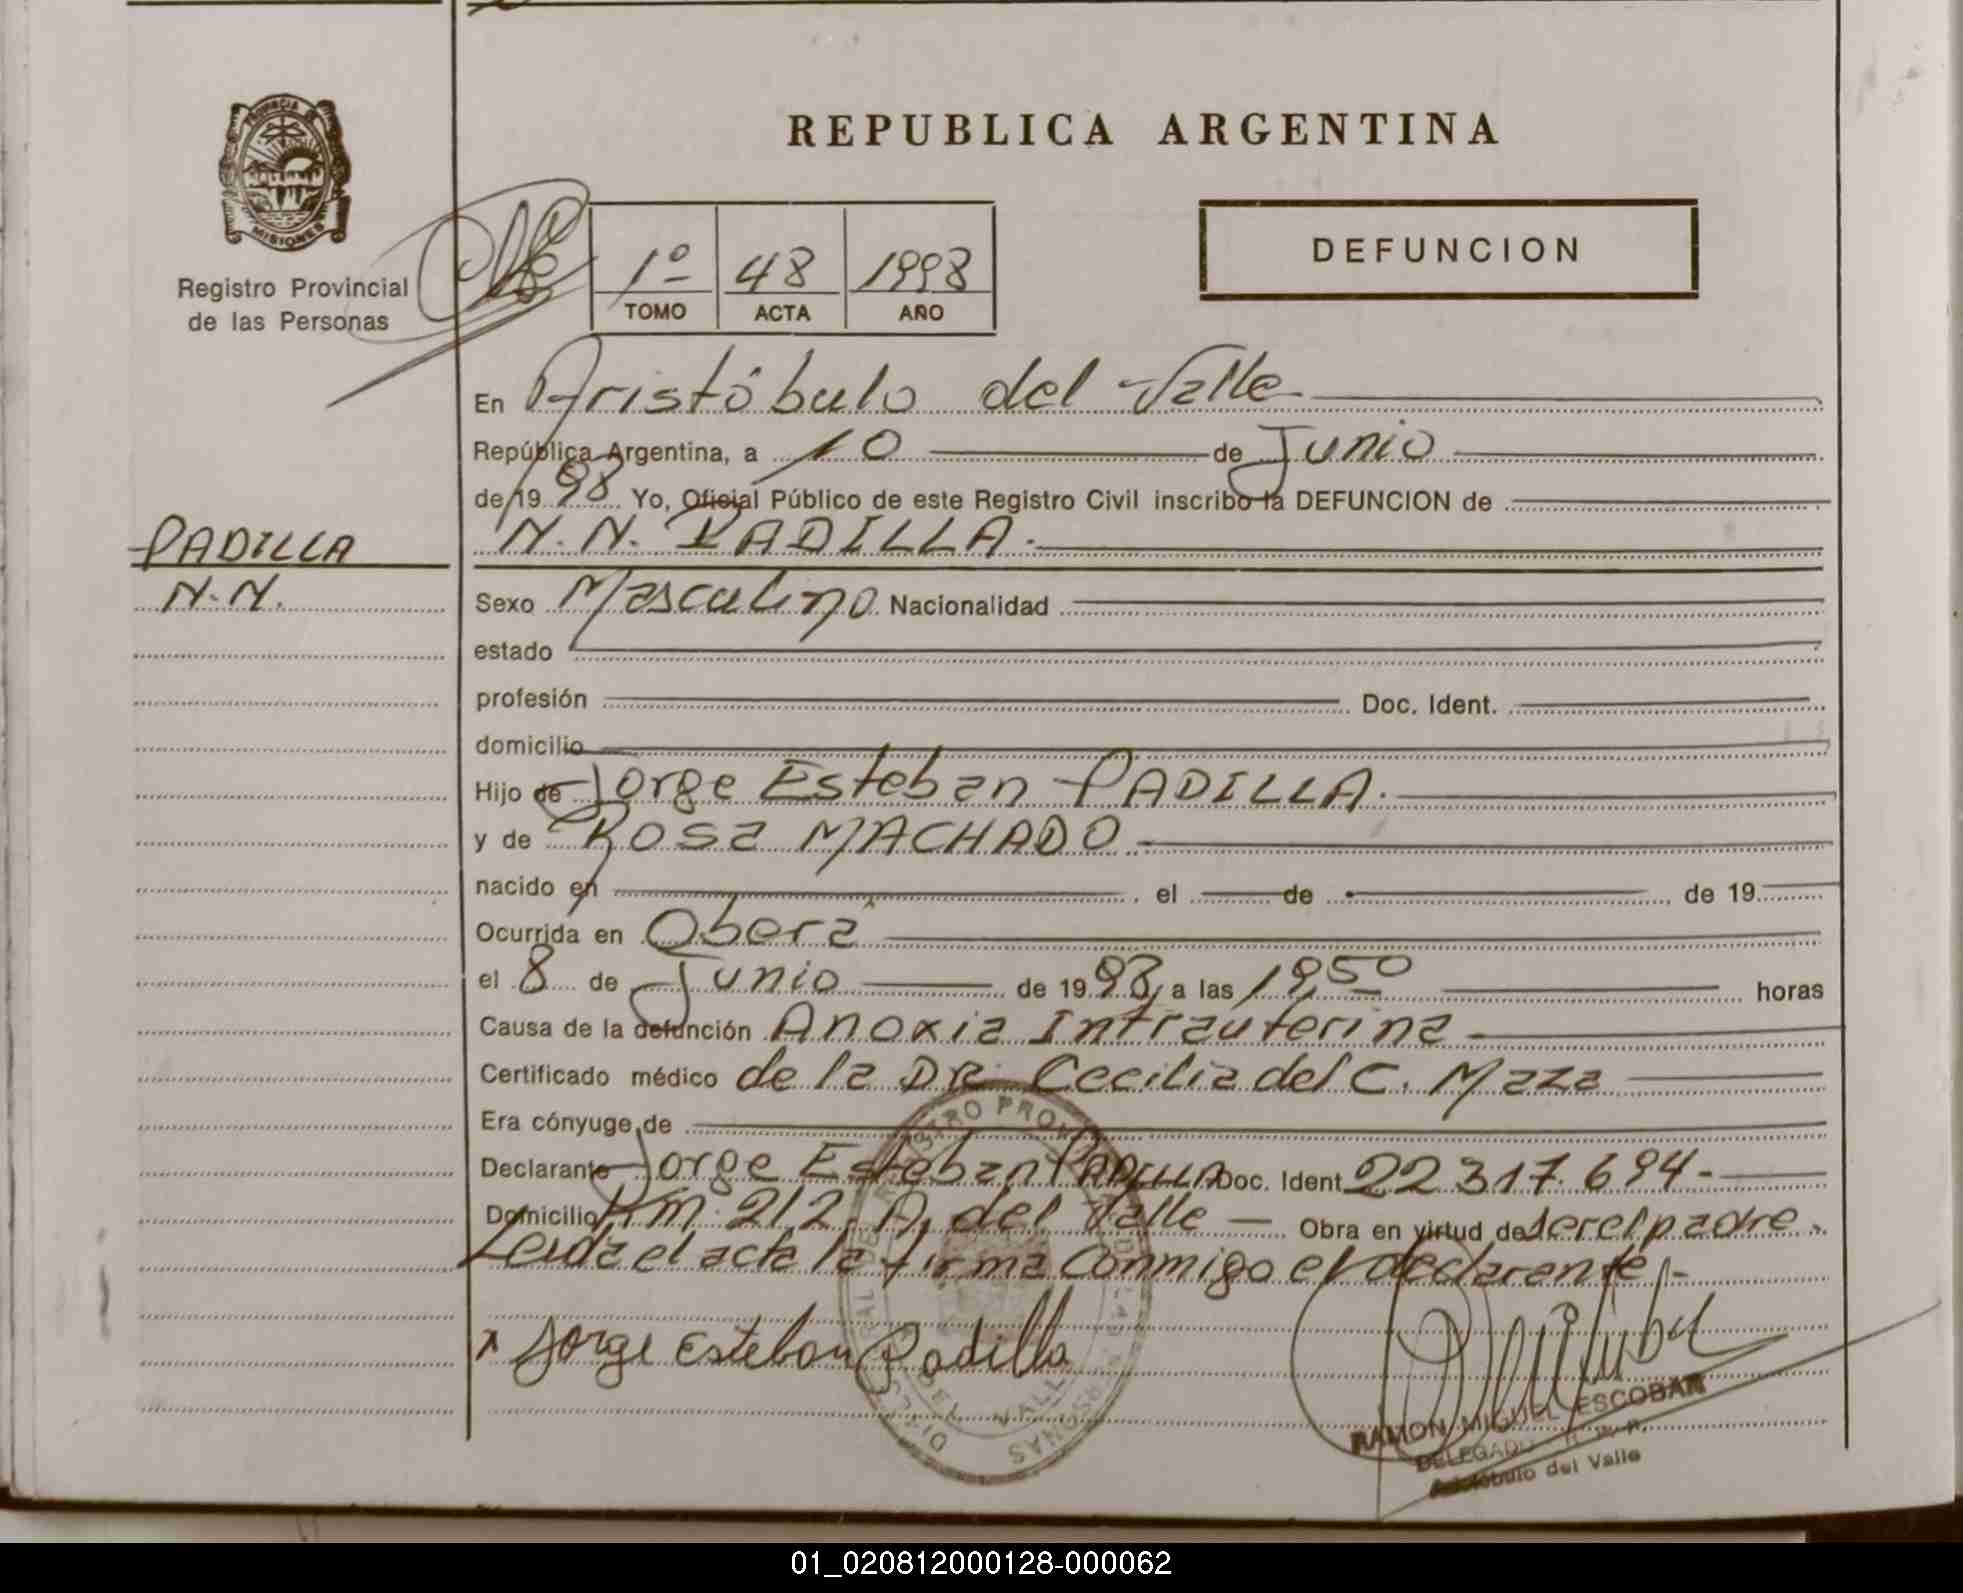 REPUBLICA ARGENTINA
PROVINCIA DE
MISIONES
Registro Provincial
de las Personas
1º 48 1998
TOMO ACTA AÑO
DEFUNCION
En Aristóbulo del Valle
República Argentina, a 10 de Junio
de 19 98 Yo, Oficial Público de este Registro Civil inscribo la DEFUNCION de
PADILLA
N.N.
N. N. PADILLA.
Sexo Masculino Nacionalidad
estado
profesión Doc. Ident.
domicilio
Hijo de Jorge Esteban PADILLA.
y de Rosa MACHADO
nacido en , el de de 19
Ocurrida en Oberá
el 8 de Junio de 19 98, a las 19,50 horas
Causa de la defunción Anoxia Intrauterina
Certificado médico de la DR. Cecilia del C. Maza
Era cónyuge de
Declarante Jorge Esteban PADILLA Doc. Ident. 22.317.694-
Domicilio Km. 212. A. del Valle Obra en virtud de ser el padre.
Leida el acta la firma conmigo el declarante.-
x Jorge Esteban Padilla
RAMON MIGUEL ESCOBAR
DELEGADO
Aristóbulo del Valle
01_020812000128-000062